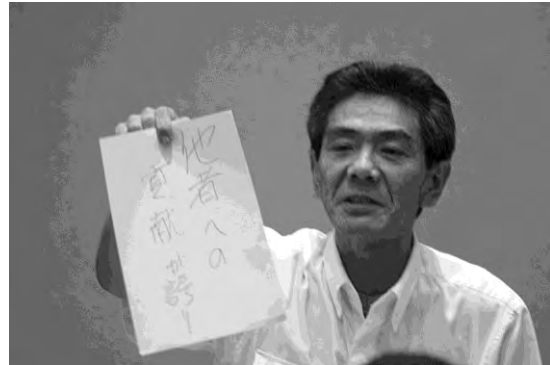 他者への
貢献が誇り!